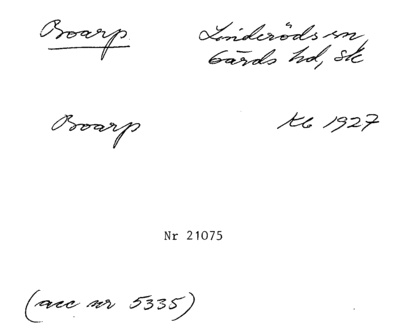 Boarp Linderöds sn,
Gärds hd, Sk
Boarp Kb 1927
Nr 21075
(acc nr 5335)